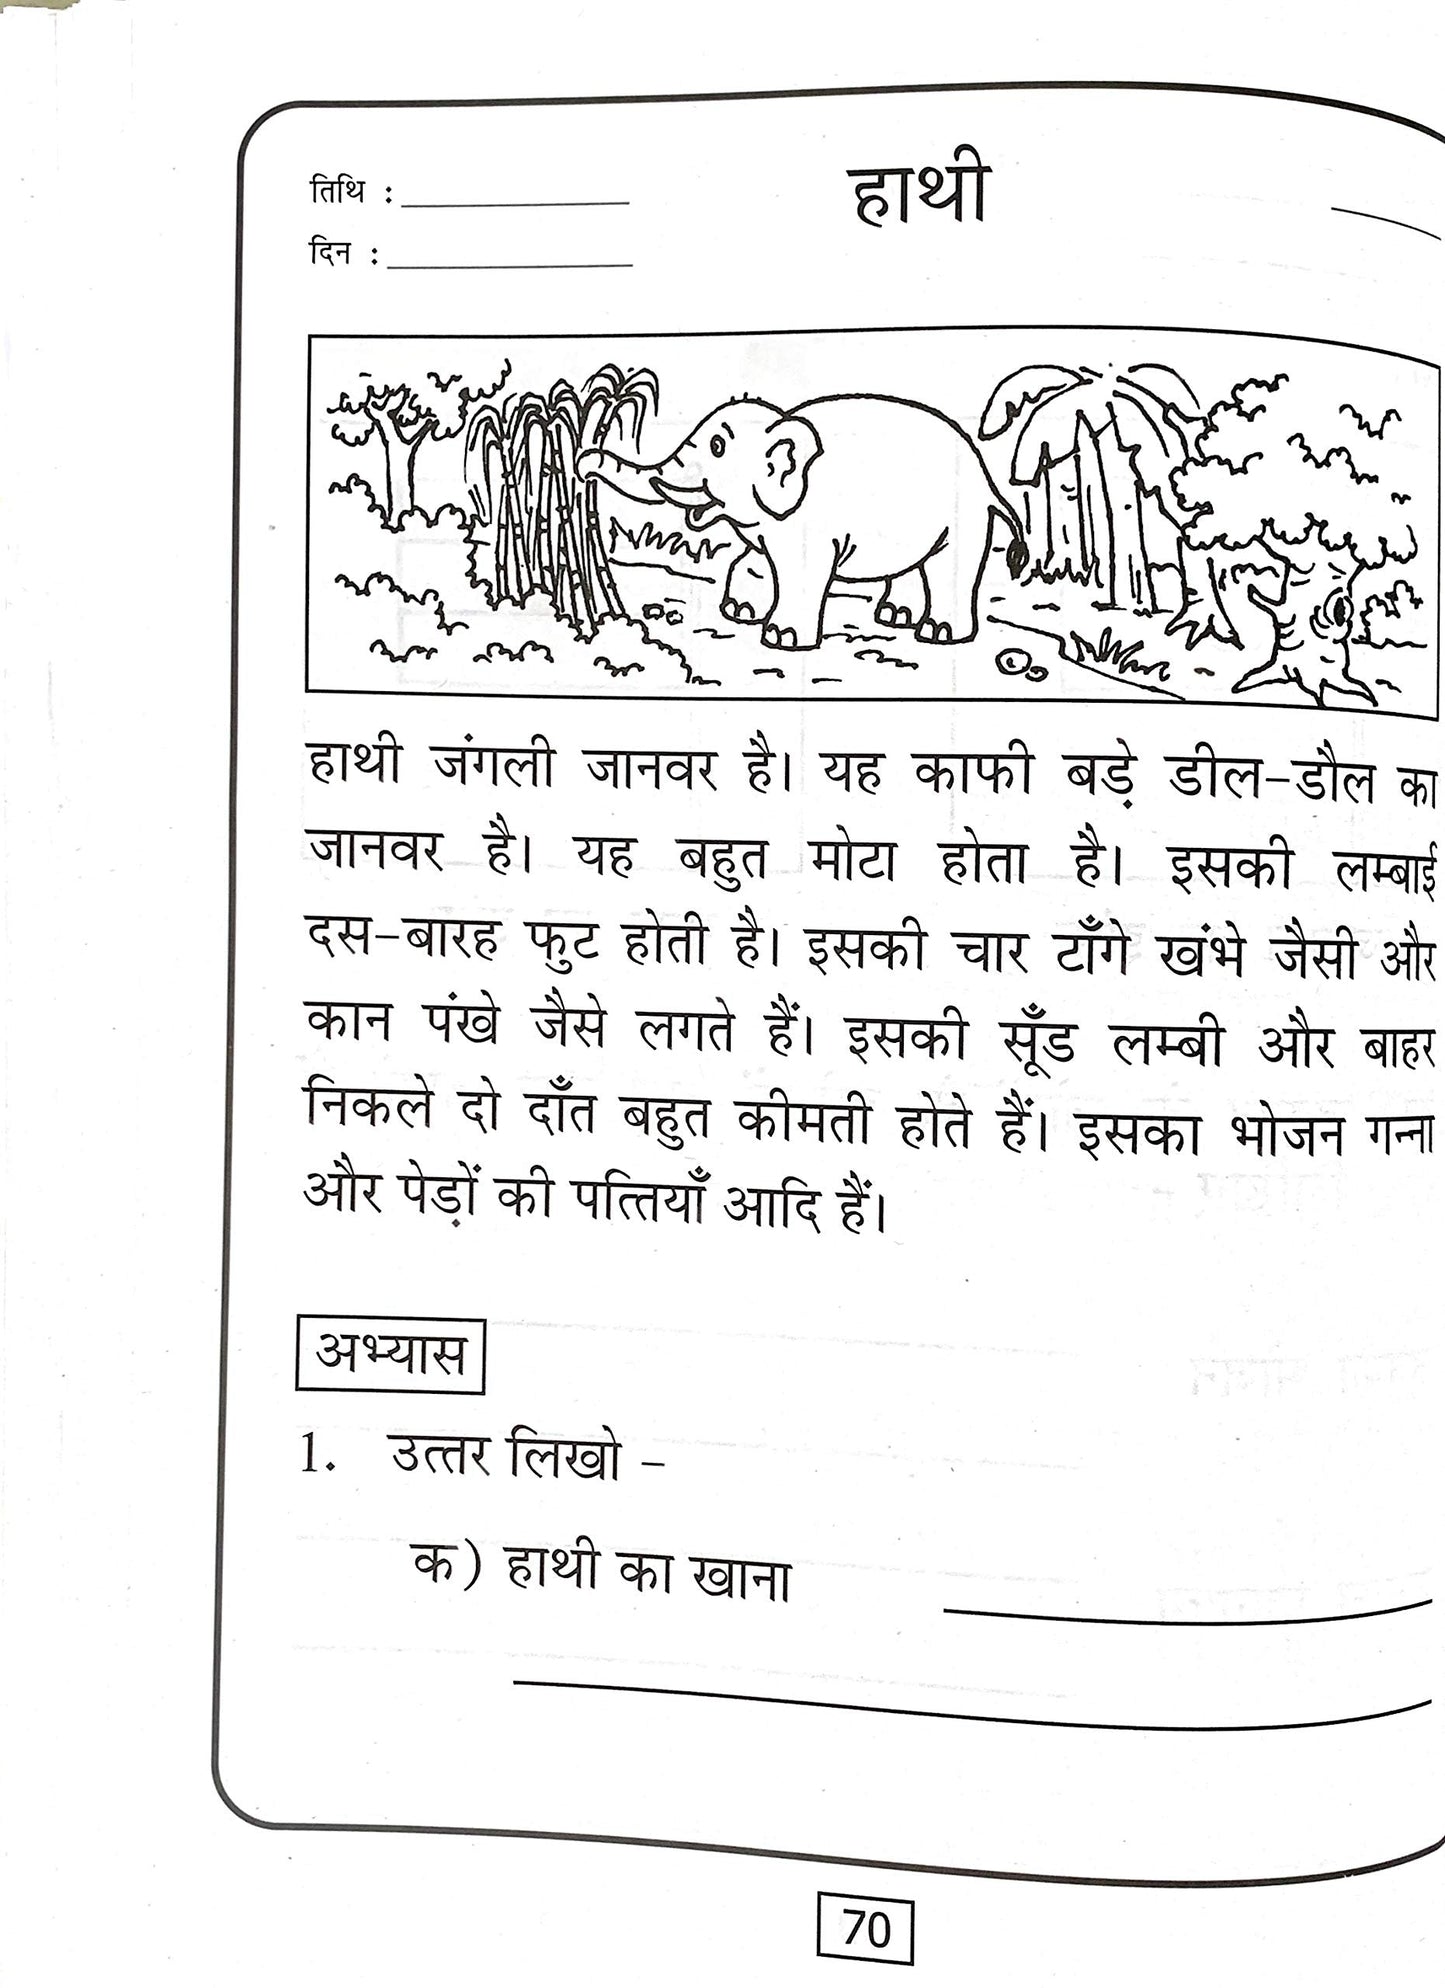 हाथी
तिथि :
दिन :
हाथी जंगली जानवर है। यह काफी बड़े डील-डौल का
जानवर है। यह बहुत मोटा होता है। इसकी लम्बाई
दस-बारह फुट होती है। इसकी चार टाँगे खंभे जैसी और
कान पंखे जैसे लगते हैं। इसकी सूँड लम्बी और बाहर
निकले दो दाँत बहुत कीमती होते हैं। इसका भोजन गन्ना
और पेड़ों की पत्तियाँ आदि हैं।
अभ्यास
1. उत्तर लिखो -
क) हाथी का खाना
70